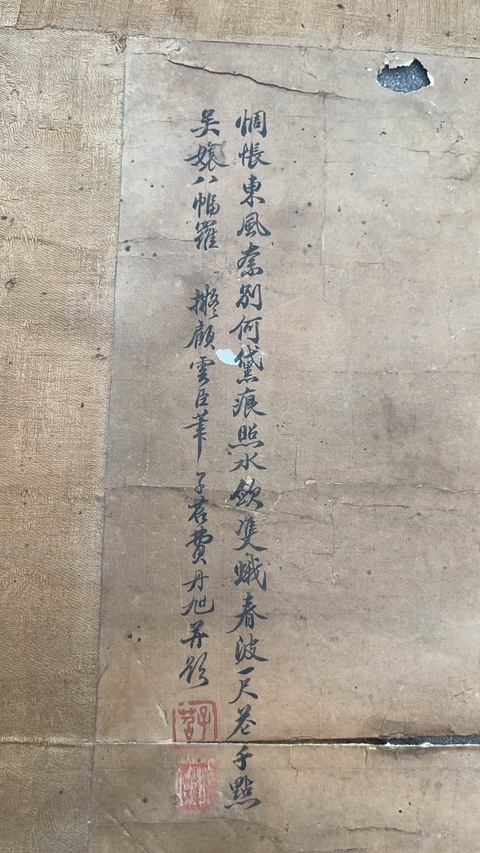 惆悵東風柰別何黛痕照水斂雙蛾春波一尺花千點
吳孃八幅羅　擬顧雲臣筆　子苕費丹旭并題
子苕